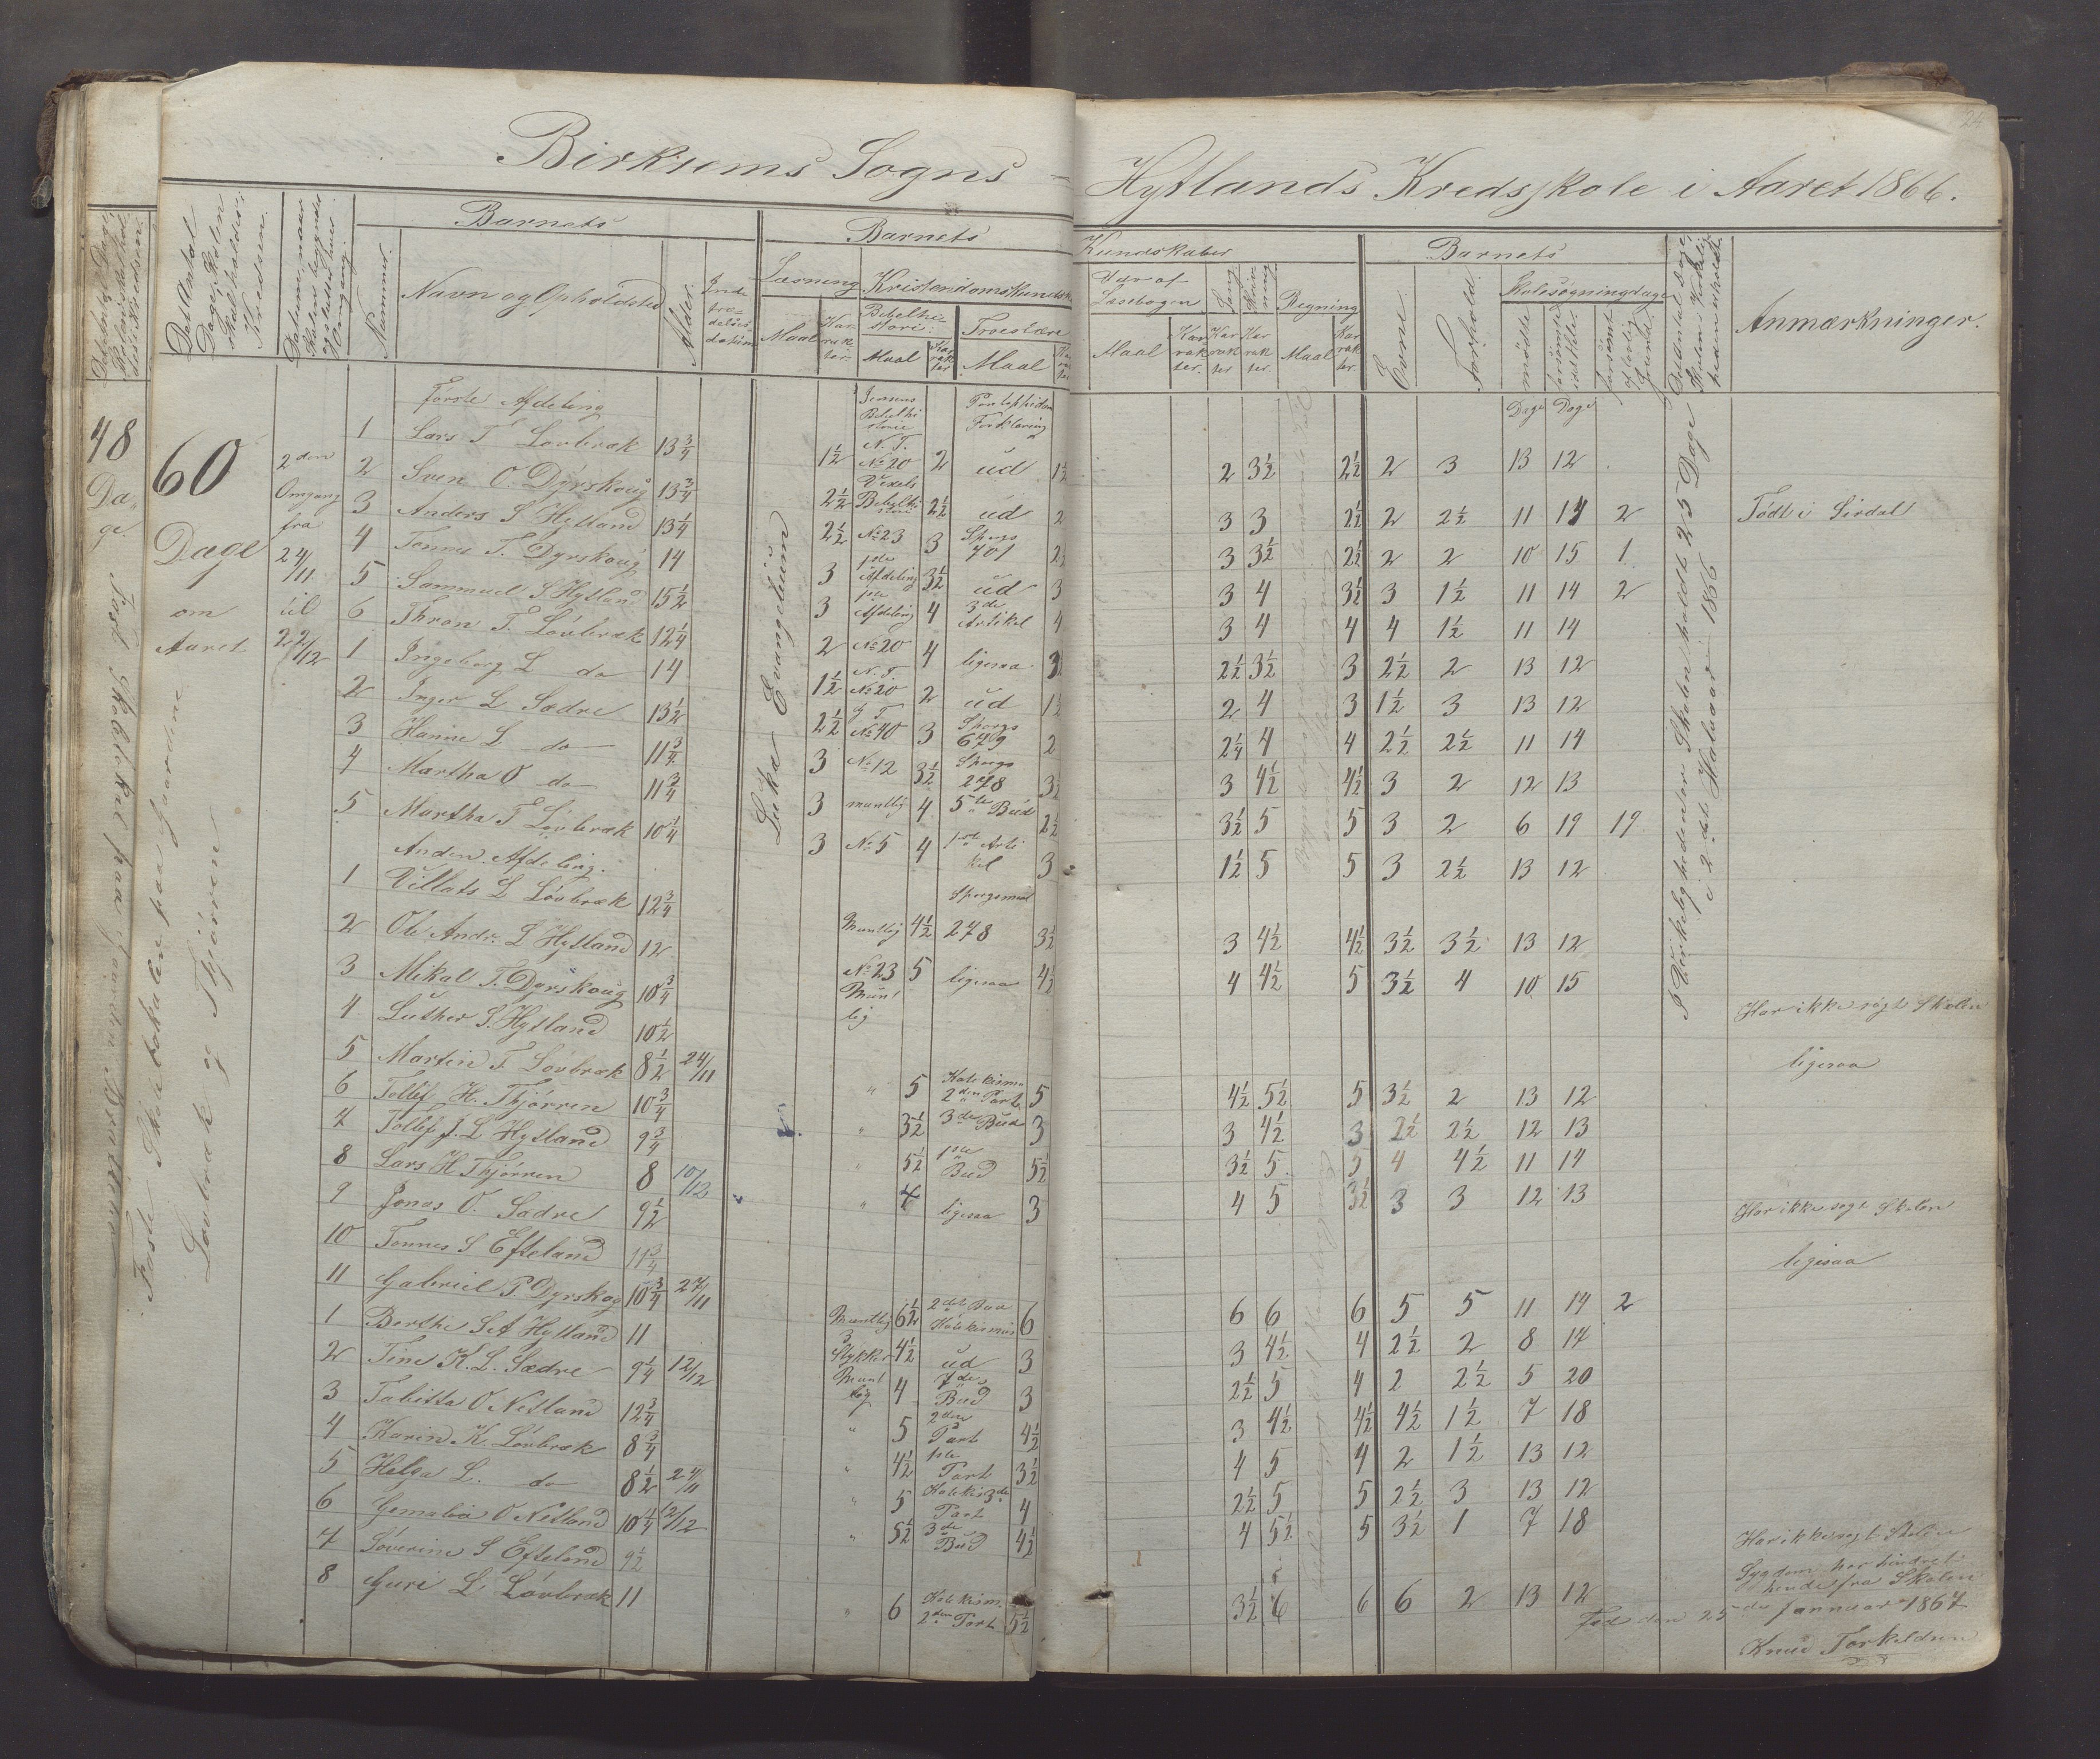 24
Birkrems Sogns – Hytlands Kredsskole i Aaret 1866.
Det Antal Dage, Skolen skal holdes i Kredsen.
Datum, naar Skolen begynder og slutter hver Omgang.
Barnets
Nummer.
Navn og Opholdsted
Alder.
Indtrædelsesdatum
Barnets Kundskaber
Læsning
Maal
Karakter.
Kristendomskundsk.
Bibelhistorie.
Maal
Karakter
Troeslære
Maal
Udv. af Læsebogen
Maal
Karakter.
Sang
Karakter
Skrivning
Karakter.
Regning
Maal
Karakter.
Barnets
Evne.
Forhold.
Skolesøgningsdage
mødte
forsømte i det Hele.
forsømt af lovlig Grund.
Det Antal Dage, Skolen i Virkeligheden er holdt
Anmærkninger.
48
Dage
60
Dage
om
Aaret
2den
Omgang
fra
24/11
til
22/12
Lovbræk og Thjørren
Lukæ Evangelium
I Virkeligheden er Skolen holdt 25 Dage
i 2det Halvaar 1866
Første Afdeling
Jensens Bibelhistorie
Pontoppidans Forklaring
Dage Dage
1 Lars T Lovbræk 13 3/4 1 1/2 N.T. No 20 2 ud 1 1/2 2 3 1/2 2 1/2 2 3 13 12
2 Sven O. Dyrskoug 13 3/4 2 1/2 Vexels Bibelhistorie 2 1/2 ud 2 3 3 2 1/2 2 2 1/2 11 14 2 Født i Sirdal
3 Anders S Hytland 13 1/4 2 1/2 No 23 3 Spørgs 701 3 3 1/2 2 1/2 2 2 10 15 1
4 Tønnes T. Dyrskoug 14 3 1ste Afdeling 3 1/2 ud 3 3 4 3 1/2 3 1 1/2 11 14 2
5 Sammuel S Hytland 15 1/2 3 1ste Afdeling 4 3de Artikel 4 3 4 4 4 1 1/2 11 14
6 Thron T. Lovbræk 12 1/4 2 No 20 4 ligesaa 3 2 1/2 3 1/2 3 2 1/2 2 13 12
1 Ingeborg L do 14 1 1/2 N.T. No 20 2 ud 1 1/2 2 4 3 1 1/2 3 13 12
2 Inger L Sædre 13 1/2 2 1/2 No 40 3 Spørgs 679 2 2 1/4 4 4 2 1/2 2 1/2 11 14
3 Hanne L do 11 3/4 3 No 12 3 1/2 Spørgs 278 3 4 1/2 4 1/2 3 2 12 13
4 Martha O do 11 3/4 3 muntlig 4 5te Bud 2 1/2 3 1/2 5 5 3 2 6 19 19
5 Martha T Lovbræk 10 1/4 3 No 5 4 1ste Artikel 3 1 1/2 5 5 3 2 1/2 13 12
Anden Afdeling.
1 Villats L Lovbræk 12 3/4 Muntlig 4 1/2 Spørgsmaal 278 3 1/2 3 4 1/2 4 1/2 3 1/2 3 1/2 13 12
2 Ole Andr. L Hytland 12 No 23 5 ligesaa 4 1/2 4 4 1/2 5 3 1/2 4 10 15
3 Mikal T. Dyrskoug 10 3/4 Muntlig Har ikke søgt Skolen
4 Luther S. Hytland 10 1/2 ligesaa
5 Martin T Lovbræk 8 1/2 24/11 " 5 Katekisme 2den Part 5 4 1/2 5 1/2 5 3 1/2 2 13 12
6 Tollef H. Thjørren 10 3/4 " 3 1/2 3de Bud 3 3 4 1/2 3 2 1/2 2 1/2 12 13
7 Tollef J. L Hytland 9 3/4 " 5 1/2 1ste Bud 5 1/2 3 1/2 5 5 4 4 1/2 11 14
8 Lars H Thjørren 8 10/12 " 4 ligesaa 3 4 5 3 1/2 3 3 12 13
9 Jonas O. Sædre 9 1/2 Har ikke søgt Skolen
10 Tønnes S Efteland 11 3/4 ligesaa
11 Gabriel P. Dyrskog 10 3/4 27/11 Muntlig 6 1/2 2det Bud Katekismus 6 6 6 6 5 5 11 14 2
1 Berthe S A Hytland 11 3 Stykker 4 1/2 ud 3 3 4 1/2 4 2 1/2 2 8 14
2 Tine K. L. Sædre 9 1/4 12/12 Muntlig 4 7de Bud 3 2 1/2 5 4 2 2 1/2 5 20
3 Tabitta O Netland 12 3/4 " 5 2den Part 4 1/2 3 4 1/2 4 1/2 4 1/2 1 1/2 7 18
4 Karin K Lovbræk 8 3/4 " 4 1/2 1ste Part 3 1/2 4 5 4 2 1 1/2 13 12
5 Helga L. do 8 1/2 24/11 " 5 Katekis 3de Part 4 2 1/2 5 5 2 1/2 3 13 12
6 Gemalia O Netland 10 1/4 12/12 " 5 1/2 3de Bud 4 1/2 4 5 1/2 5 3 1/2 1 7 18
7 Soverine S Efteland 9 1/2 Har ikke søgt Skolen
Sygdom har hindret hende fra Skolen
8 Guri L Lovbræk 11 " 6 Katekism. 2den Part 5 1/2 3 1/2 6 6 6 2 13 12
den 25de Januar 1867
Knud Torkeldsen